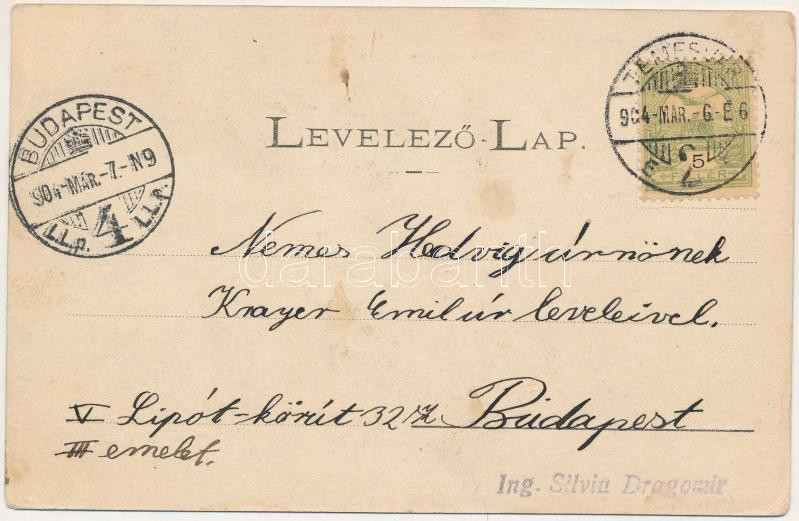 LEVELEZŐ-LAP.
BUDAPEST
904-MÁR.-7.-N9
I.L.P. 4 I.L.P.
TEMESVÁR
904-MÁR.-6.-E6
5
FILLÉR
Nemes Hedvig úrnőnek
darabanth
Krayer Emil úr leveleivel.
V Lipót-körút 32 sz Budapest
III emelet.
Ing. Silviu Dragomir